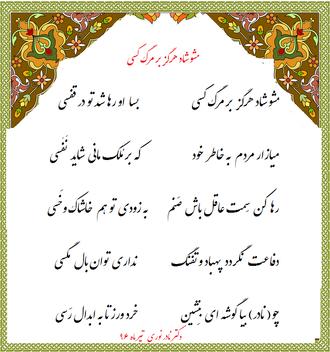 مشو شاد هرگز بر مرگ کسی
مشو شاد هرگز بر مرگ کسی بسا او رها شد تو در قفسی
میازار مردم به خاطر خود که بر ملک مانی شاید نَفَسی
رها کن سِمت عاقل باش صنم به زودی تو هم خاشاک و خَسی
دفاعت نگردد پهباد و تفنگ نداری توان بال مگسی
چو (نادر) بیا گوشه ای بِنشین خرد ورز تا به ابدال رَسی
دکتر نادر نوری تیرماه ۹۶